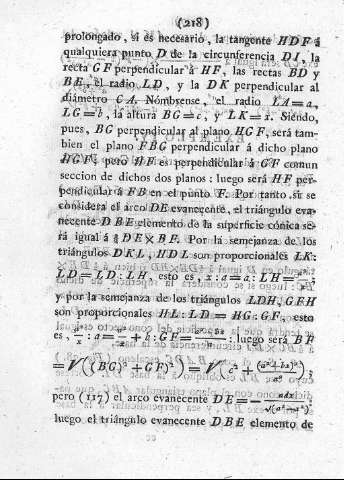 (218)
prolongado, si es necesario, la tangente HDF á
qualquiera punto D de la circunferencia DI, la
recta GF perpendicular á HF, las rectas BD y
BE, el radio LD, y la DK perpendicular al
diámetro CA. Nómbrense, el radio LA=a,
LG=b, la altura BG=c, y LK=x. Siendo,
pues, BG perpendicular al plano HGF, será tam-
bien el plano FBG perpendicular á dicho plano
HGF; pero HF es perpendicular á GF comun
seccion de dichos dos planos: luego será HF per-
pendicular á FB en el punto F. Por tanto, si se
considera el arco DE evanecente, el triángulo eva-
necente DBE elemento de la superficie cónica se-
rá igual á ½DE×BF. Por la semejanza de los
triángulos DKL, HDL son proporcionales LK:
LD=LD:LH, esto es, x:a=a:LH=
y por la semejanza de los triángulos LDH, GFH
son proporcionales HL:LD=HG:GF, esto
es, : luego será BF
=√((BG)²+GF)²)=√(c²+
pero (117) el arco evanecente DE=
luego el triángulo evanecente DBE elemento de